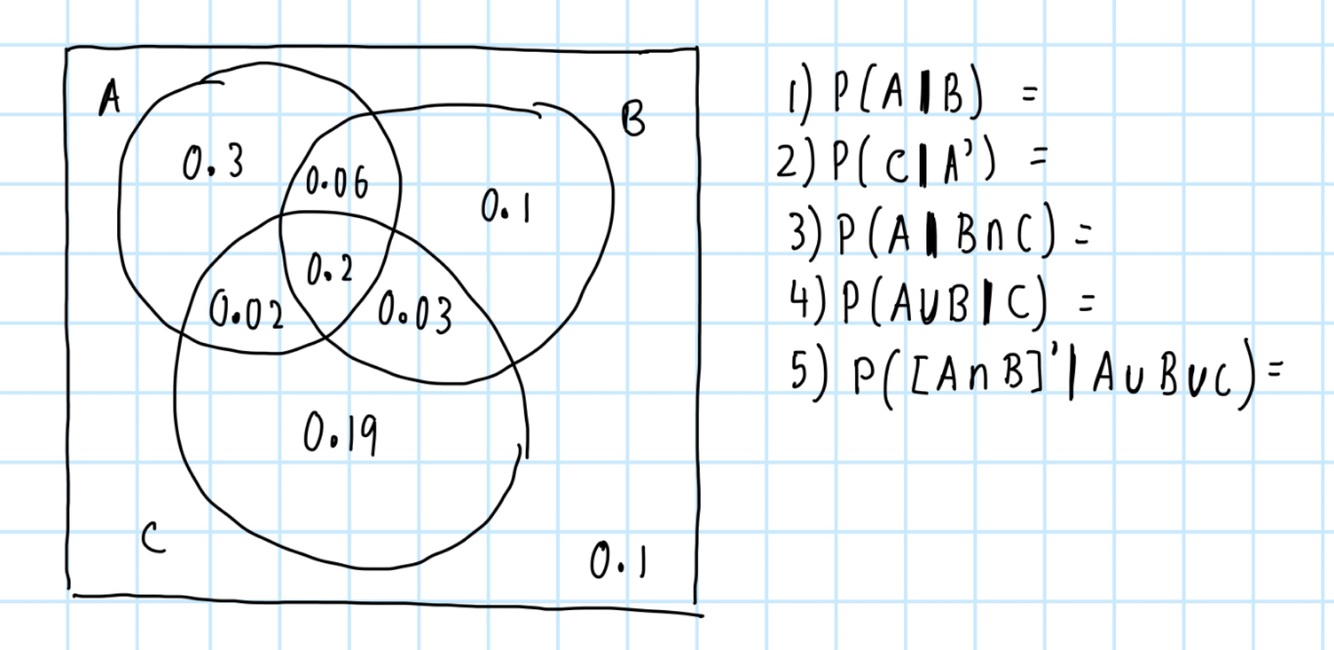 A
B
0.3
0.06
0.1
0.2
0.02
0.03
0.19
C
0.1
1) P(A|B) =
2) P(C|A') =
3) P(A|B∩C) =
4) P(A∪B|C) =
5) P([A∩B]'|A∪B∪C) =